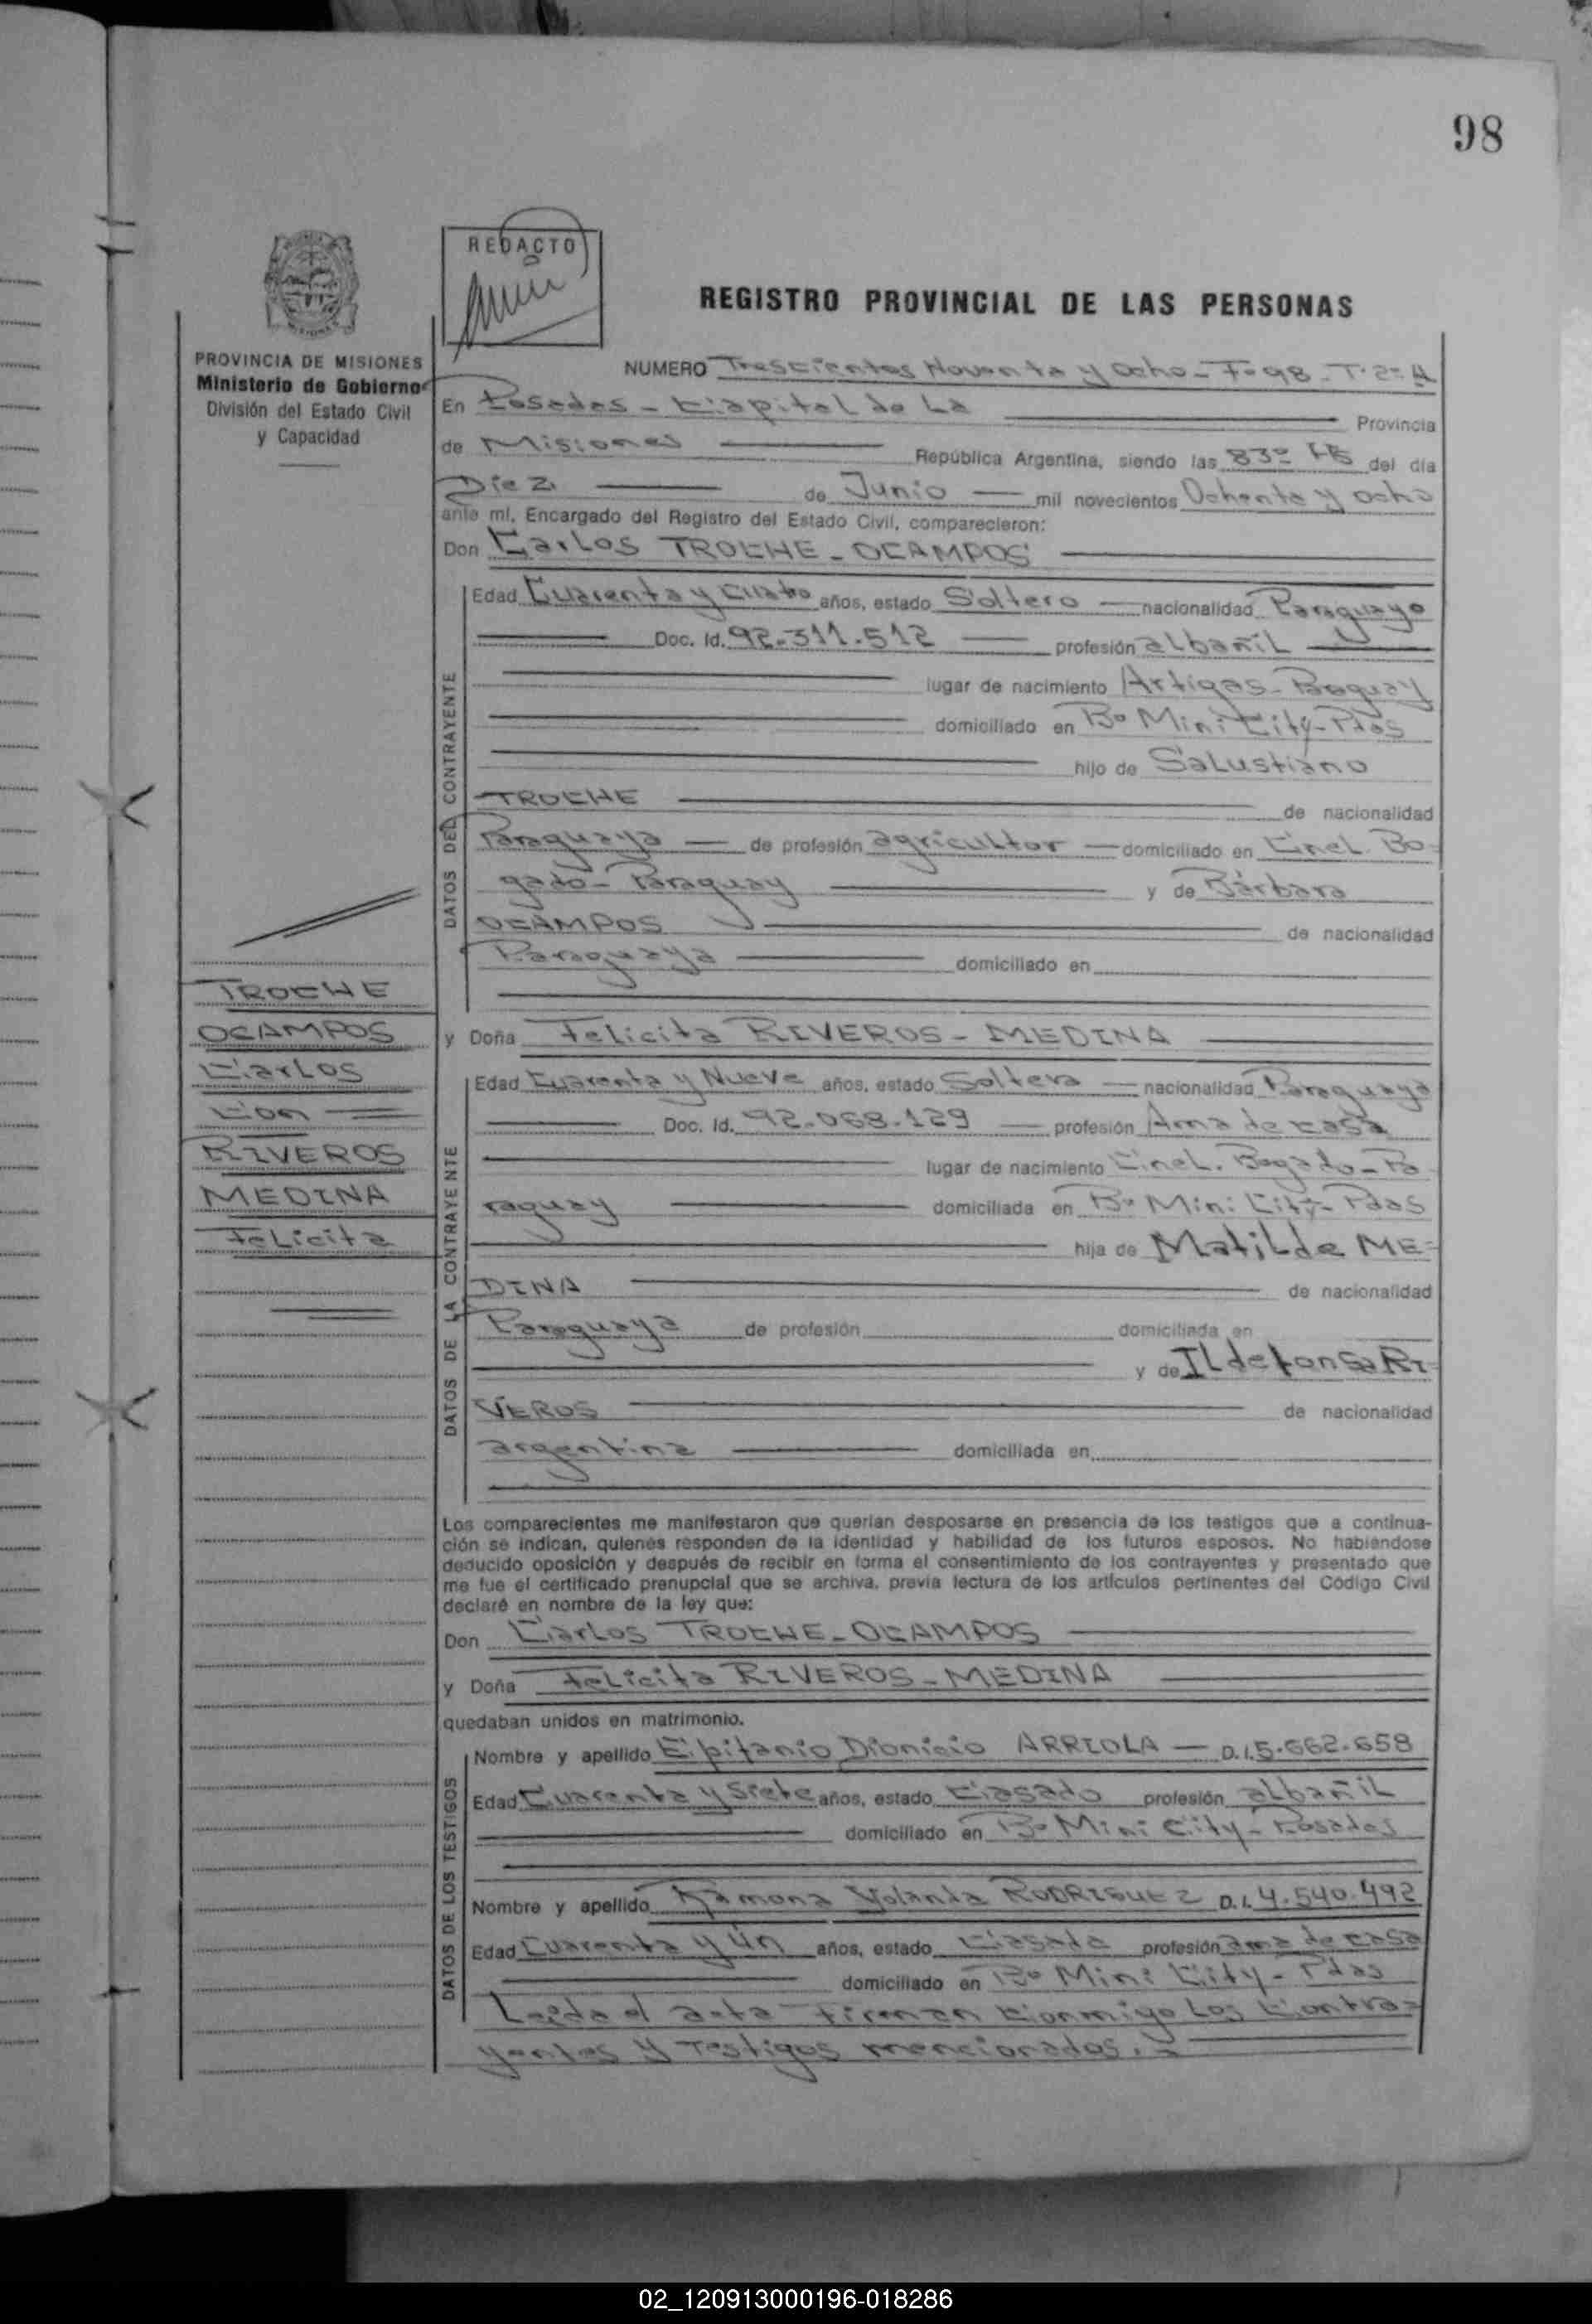 98
REDACTO
REGISTRO PROVINCIAL DE LAS PERSONAS
PROVINCIA DE MISIONES
Ministerio de Gobierno
División del Estado Civil
y Capacidad
NUMERO Trescientos Noventa y Ocho - F=98 - T.2=A
En Posadas - Capital de La Provincia
de Misiones República Argentina, siendo las 83º HS del día
Diez de Junio mil novecientos Ochenta y ocho
ante mí, Encargado del Registro del Estado Civil, comparecieron:
Don Carlos TROCHE - OCAMPOS
DATOS DEL CONTRAYENTE
Edad Cuarenta y Cuatro años, estado Soltero nacionalidad Paraguayo
Doc. Id. 92.311.512 profesión albañil
lugar de nacimiento Artigas - Paraguay
domiciliado en Bº Mini City - Pdas
hijo de Salustiano
TROCHE de nacionalidad
Paraguaya de profesión agricultor domiciliado en Cnel. Bo=
gado - Paraguay y de Bárbara
OCAMPOS de nacionalidad
Paraguaya domiciliado en
y Doña Felicita RIVEROS - MEDINA
DATOS DE LA CONTRAYENTE
Edad Cuarenta y Nueve años, estado Soltera nacionalidad Paraguaya
Doc. Id. 92.068.129 profesión Ama de casa
lugar de nacimiento Cnel. Bogado - Pa
raguay domiciliada en Bº Mini City - Pdas
hija de Matilde ME=
DINA de nacionalidad
Paraguaya de profesión domiciliada en
y de Ildefonsa RI=
VEROS de nacionalidad
argentina domiciliada en
TROCHE
OCAMPOS
Carlos
Con
RIVEROS
MEDINA
Felicita
Los comparecientes me manifestaron que querían desposarse en presencia de los testigos que a continua-
ción se indican, quienes responden de la identidad y habilidad de los futuros esposos. No habiéndose
deducido oposición y después de recibir en forma el consentimiento de los contrayentes y presentado que
me fue el certificado prenupcial que se archiva, previa lectura de los artículos pertinentes del Código Civil
declaré en nombre de la ley que:
Don Carlos TROCHE - OCAMPOS
y Doña Felicita RIVEROS - MEDINA
quedaban unidos en matrimonio.
DATOS DE LOS TESTIGOS
Nombre y apellido Epifanio Dionicio ARRIOLA - D.I. 5.662.658
Edad Cuarenta y Siete años, estado Casado profesión albañil
domiciliado en Bº Mini City - Posadas
Nombre y apellido Ramona Yolanda RODRIGUEZ D.I. 4.540.492
Edad Cuarenta y Ún años, estado Casada profesión ama de casa
domiciliado en Bº Mini City - Pdas
Leída el acta firman Conmigo Los Contra=
yentes y Testigos mencionados.-
02_120913000196-018286